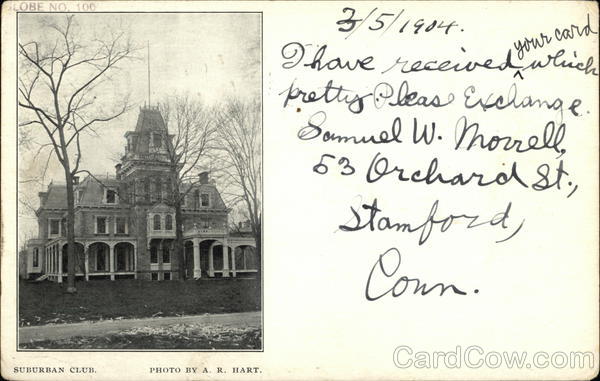 GLOBE NO. 100
3/5/1904.
your card
I have received ^ which
pretty Pleas Exchange.
Samuel W. Morrell,
53 Orchard St.,
Stamford,
Conn.
SUBURBAN CLUB. PHOTO BY A. R. HART.
CardCow.com